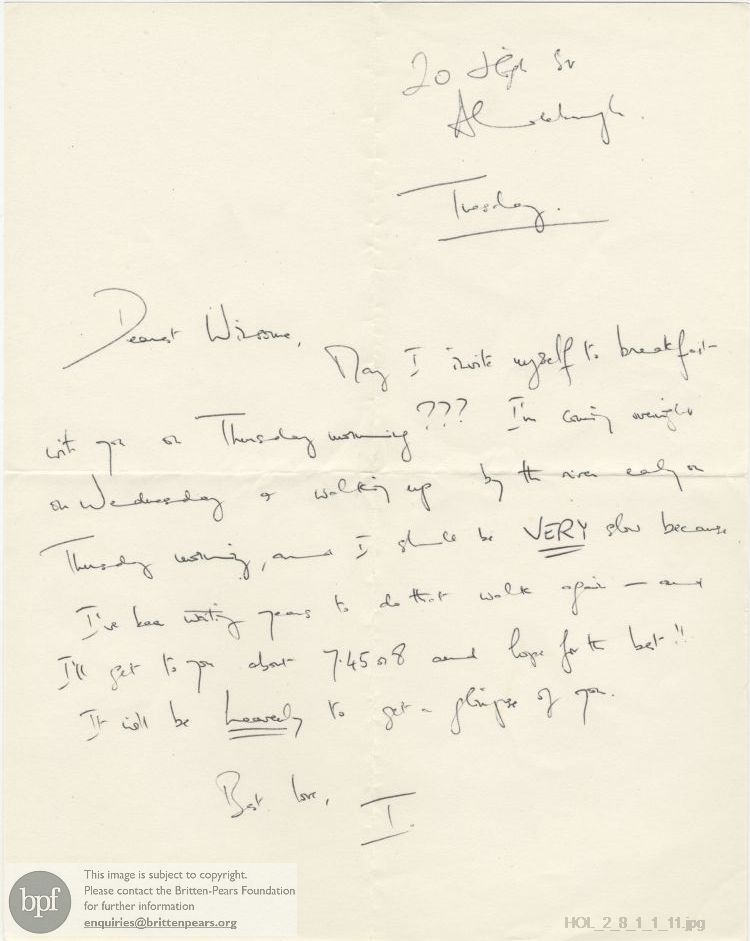 20 High St
Aldeburgh.
Tuesday.
Dearest Winsome,
May I invite myself to breakfast
with you on Thursday morning??? I'm coming overnight
on Wednesday & walking up by the river early on
Thursday morning, and I shall be VERY slow because
I've been waiting years to do that walk again — and
I'll get to you about 7.45 or 8 and hope for the best!!
It will be heavenly to get a glimpse of you.
Best love,
I.
bpf
This image is subject to copyright.
Please contact the Britten-Pears Foundation
for further information
enquiries@brittenpears.org
HOL_2_8_1_1_11.jpg